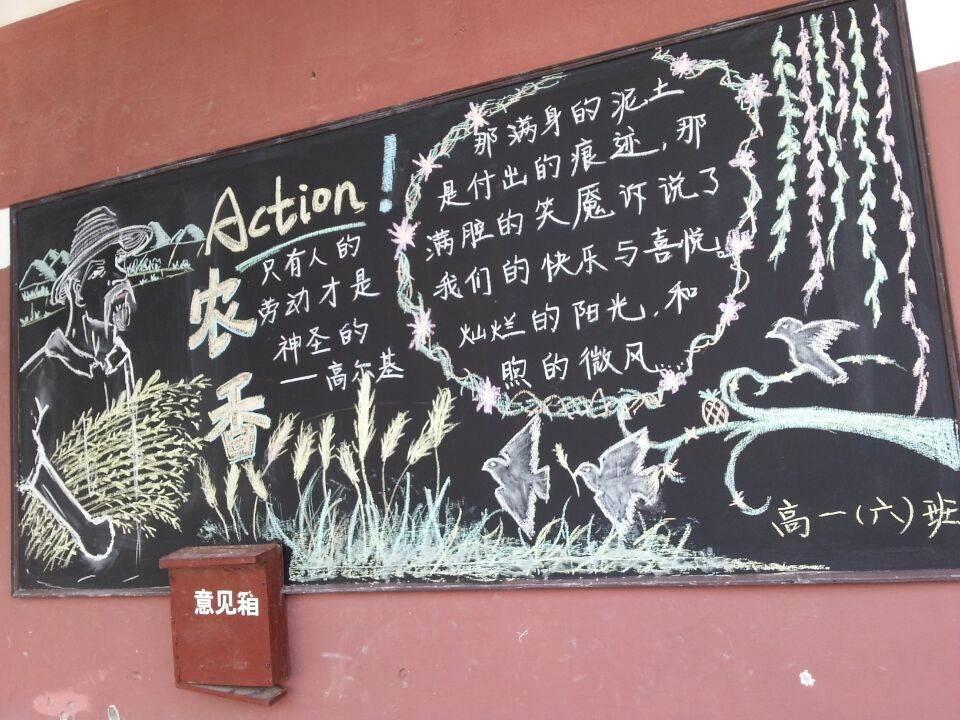 Action!
农香
只有人的
劳动才是
神圣的
——高尔基
那满身的泥土
是付出的痕迹,那
满腔的笑魇诉说了
我们的快乐与喜悦。
灿烂的阳光,和
煦的微风……
高一(六)班
意见箱